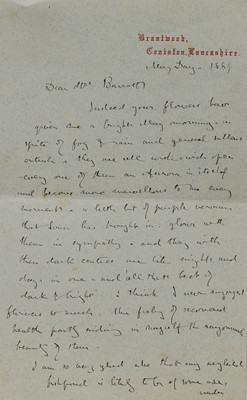 Brantwood,
Coniston, Lancashire.
May Day - 188
Dear Mrs Barratt
Indeed your flowers have
given me a bright May morning in
spite of fog & rain and general sullen
outside. they are all wide - wide open
every one of them an in itself
and become more marvellous to me every
moment. a little bit of purple veronica
that has brought in. glows with
them in sympathy - and they with
their dark centres are like night and
day, in one - and all that's best of
dark & bright. I think I never enjoyed
flowers so much. the feeling of recovered
health partly in myself the
beauty of them.
I am so very glad also that my neglected
is likely to be of some use,
under